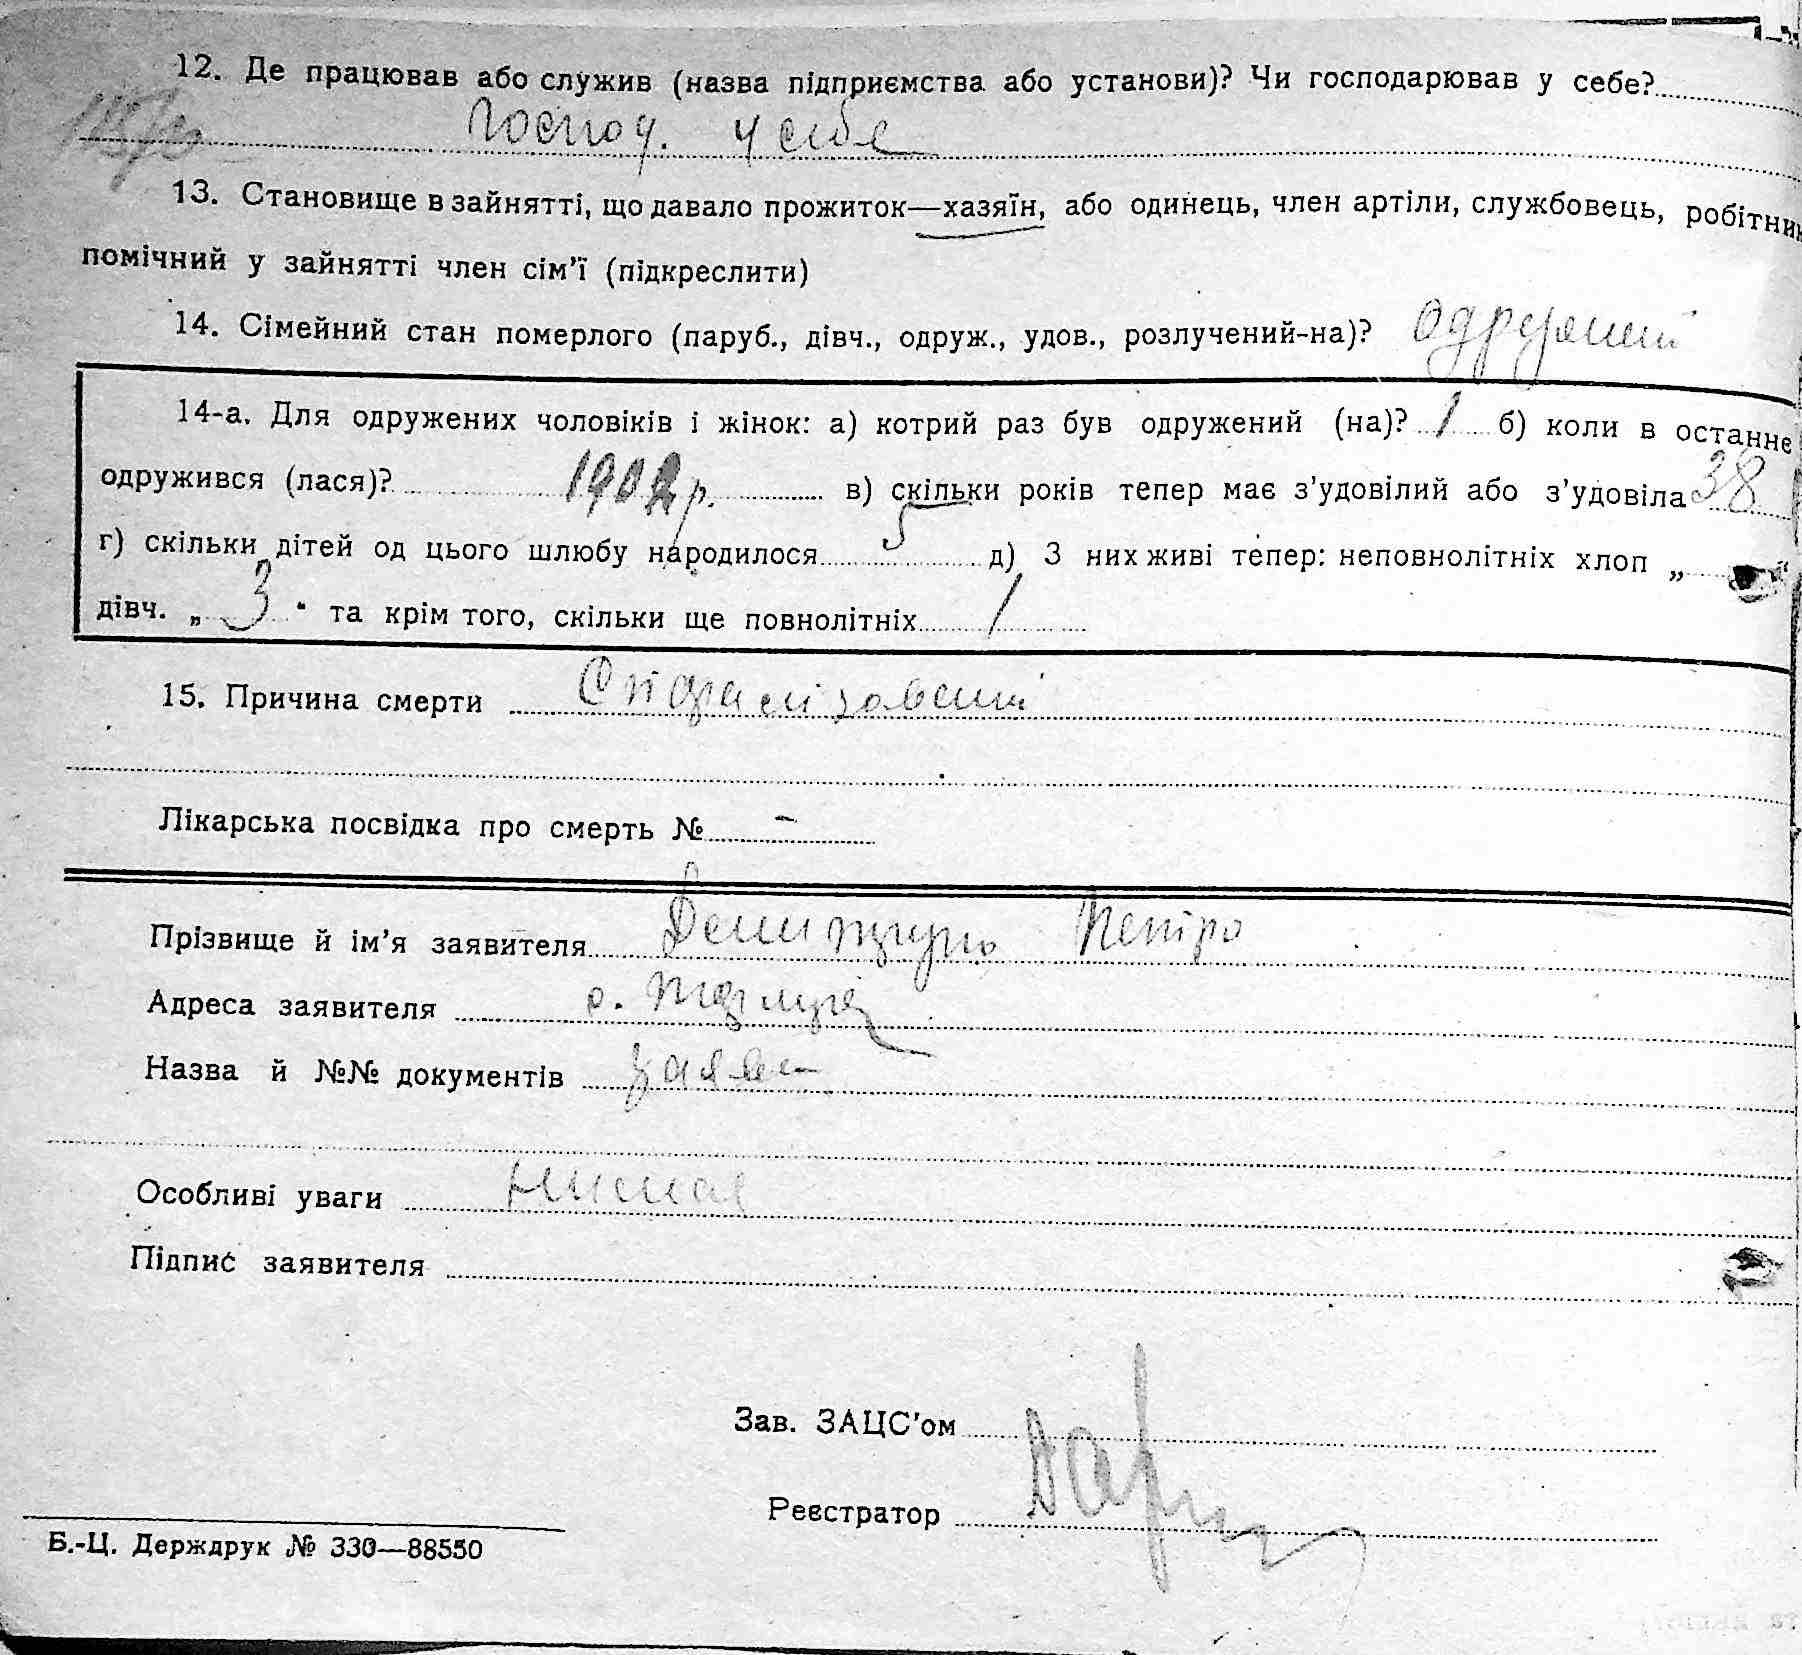 12. Де працював або служив (назва підприємства або установи)? Чи господарював у себе?
Господ. у себе
13. Становище в зайнятті, що давало прожиток—хазяїн, або одинець, член артіли, службовець, робітник
помічний у зайнятті член сім'ї (підкреслити)
14. Сімейний стан померлого (паруб., дівч., одруж., удов., розлучений-на)? одружений
14-а. Для одружених чоловіків і жінок: а) котрий раз був одружений (на)? 1 б) коли в останнє
одружився (лася)? 1902 р. в) скільки років тепер має з'удовілий або з'удовіла 38
г) скільки дітей од цього шлюбу народилося 5 д) З них живі тепер: неповнолітніх хлоп „ “
дівч. „ 3 “ та крім того, скільки ще повнолітніх 1
15. Причина смерти
Лікарська посвідка про смерть № -
Прізвище й ім'я заявителя Петро
Адреса заявителя с.
Назва й №№ документів заява
Особливі уваги немає
Підпис заявителя
Зав. ЗАЦС'ом
Реєстратор
Б.-Ц. Держдрук № 330—88550